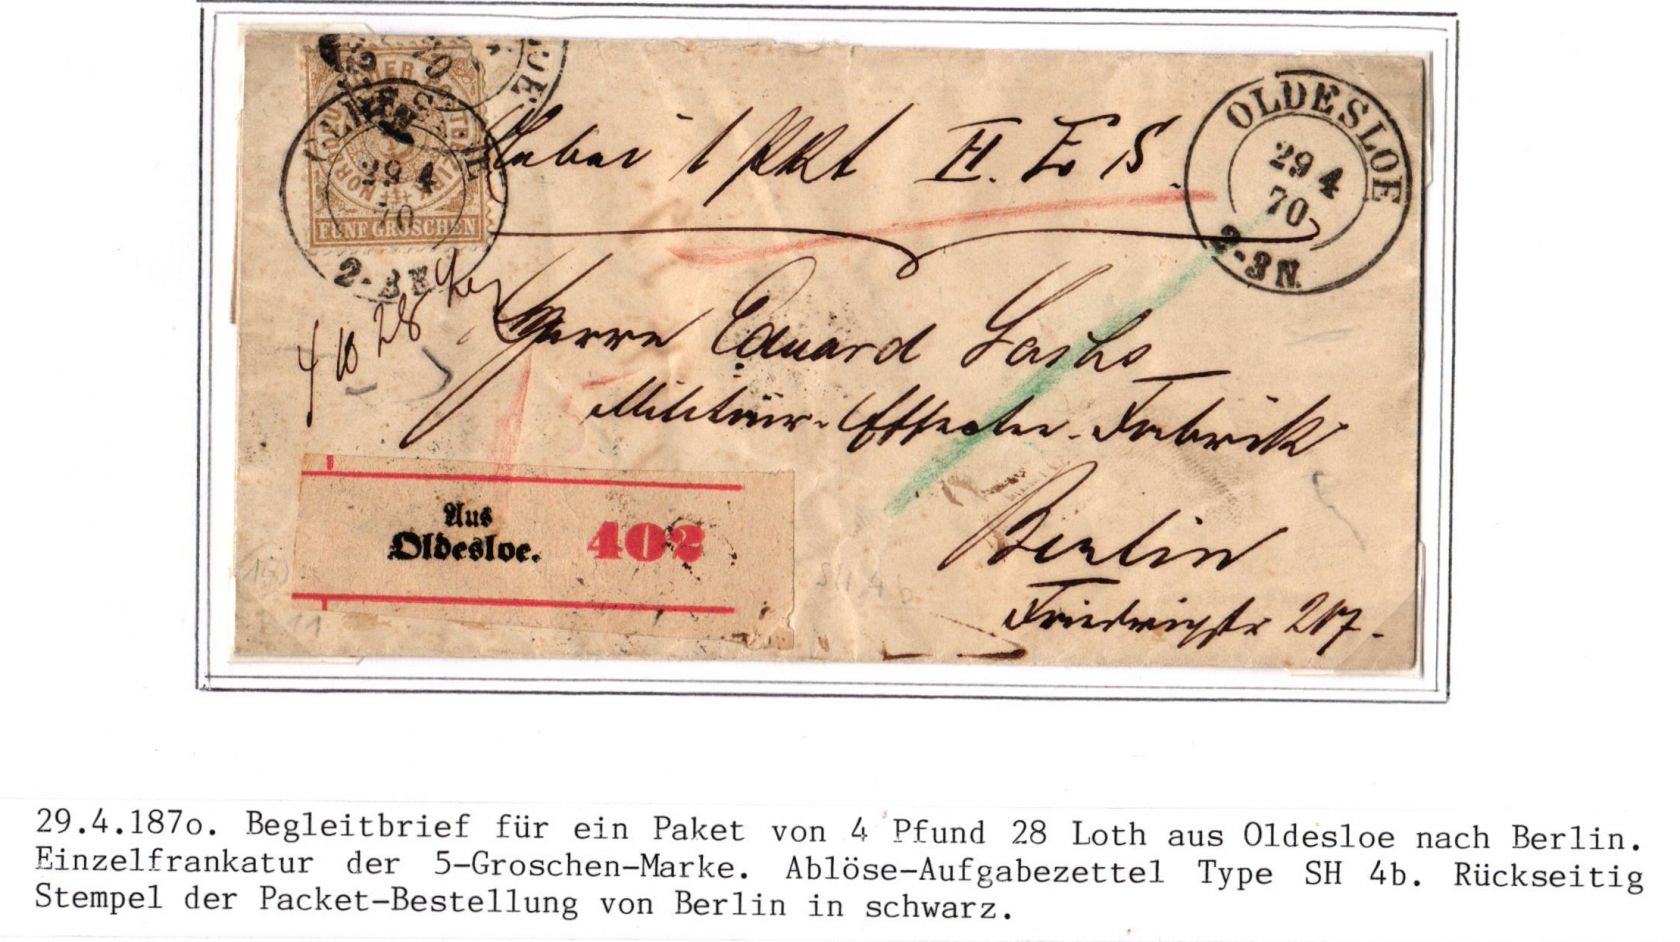 NORDDEUTSCHER POSTBEZIRK
FÜNF GROSCHEN
OLDESLOE
29 4
70
2-3 N.
OLDESLOE
29 4
70
2-3 N.
1 Pkt H. E. S.
4 28
Herrn Eduard Sachs
Militair-Effecten-Fabrik
Berlin
Friedrichstr 217.
Aus
Oldesloe. 402
29.4.187o. Begleitbrief für ein Paket von 4 Pfund 28 Loth aus Oldesloe nach Berlin.
Einzelfrankatur der 5-Groschen-Marke. Ablöse-Aufgabezettel Type SH 4b. Rückseitig
Stempel der Packet-Bestellung von Berlin in schwarz.